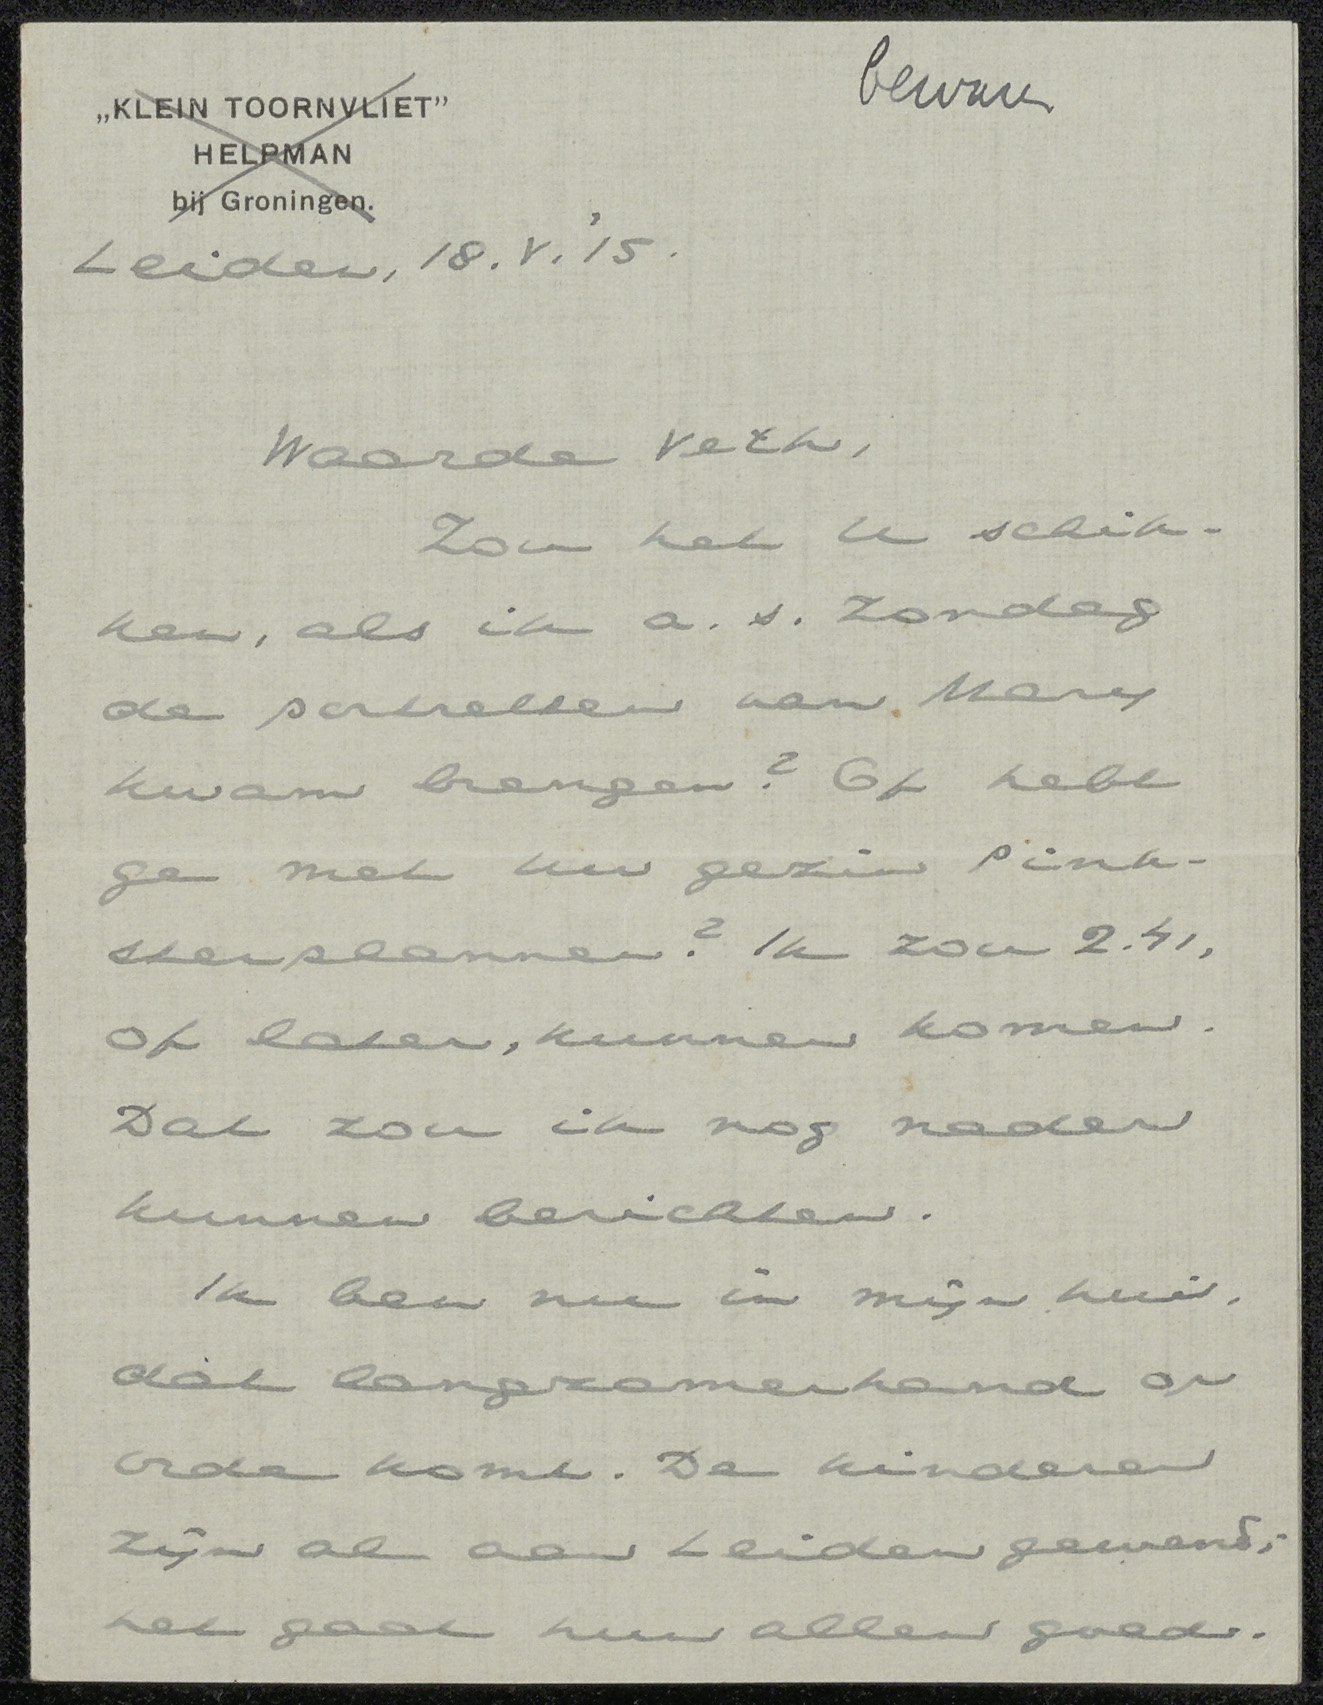 bewaren
„KLEIN TOORNVLIET”
HELPMAN
bij Groningen.
Leiden, 18.V.'15.
Waarde Veth,
Zou het U schik-
ken, als ik a.s. Zondag
de portretten van Mary
kwam brengen? Of hebt
ge met uw gezin Pink-
sterplannen? Ik zou 2.41,
of later, kunnen komen.
Dat zou ik nog nader
kunnen berichten.
Ik ben nu in mijn huis,
dat langzamerhand op
orde komt. De kinderen
zijn al aan Leiden gewend;
het gaat hun allen goed.